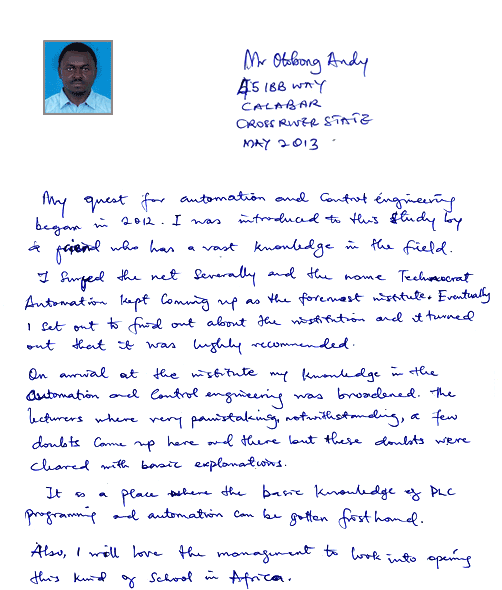 Mr Otobong Andy
45 IBB WAY
CALABAR
CROSS RIVER STATE
MAY 2013
My quest for automation and Control engineering
began in 2012. I was introduced to this study by
a friend who has a vast knowledge in the field.
I surfed the net severally and the name Technocrat
Automation kept coming up as the foremost institute. Eventually
I set out to find out about the institution and it turned
out that it was highly recommended.
On arrival at the institute my knowledge in the
Automation and Control engineering was broadened. The
lecturers where very painstaking, notwithstanding, a few
doubts came up here and there but these doubts were
cleared with basic explanations.
It is a place where the basic knowledge of PLC
programming and automation can be gotten first hand.
Also, I will love the management to look into opening
this kind of School in Africa.